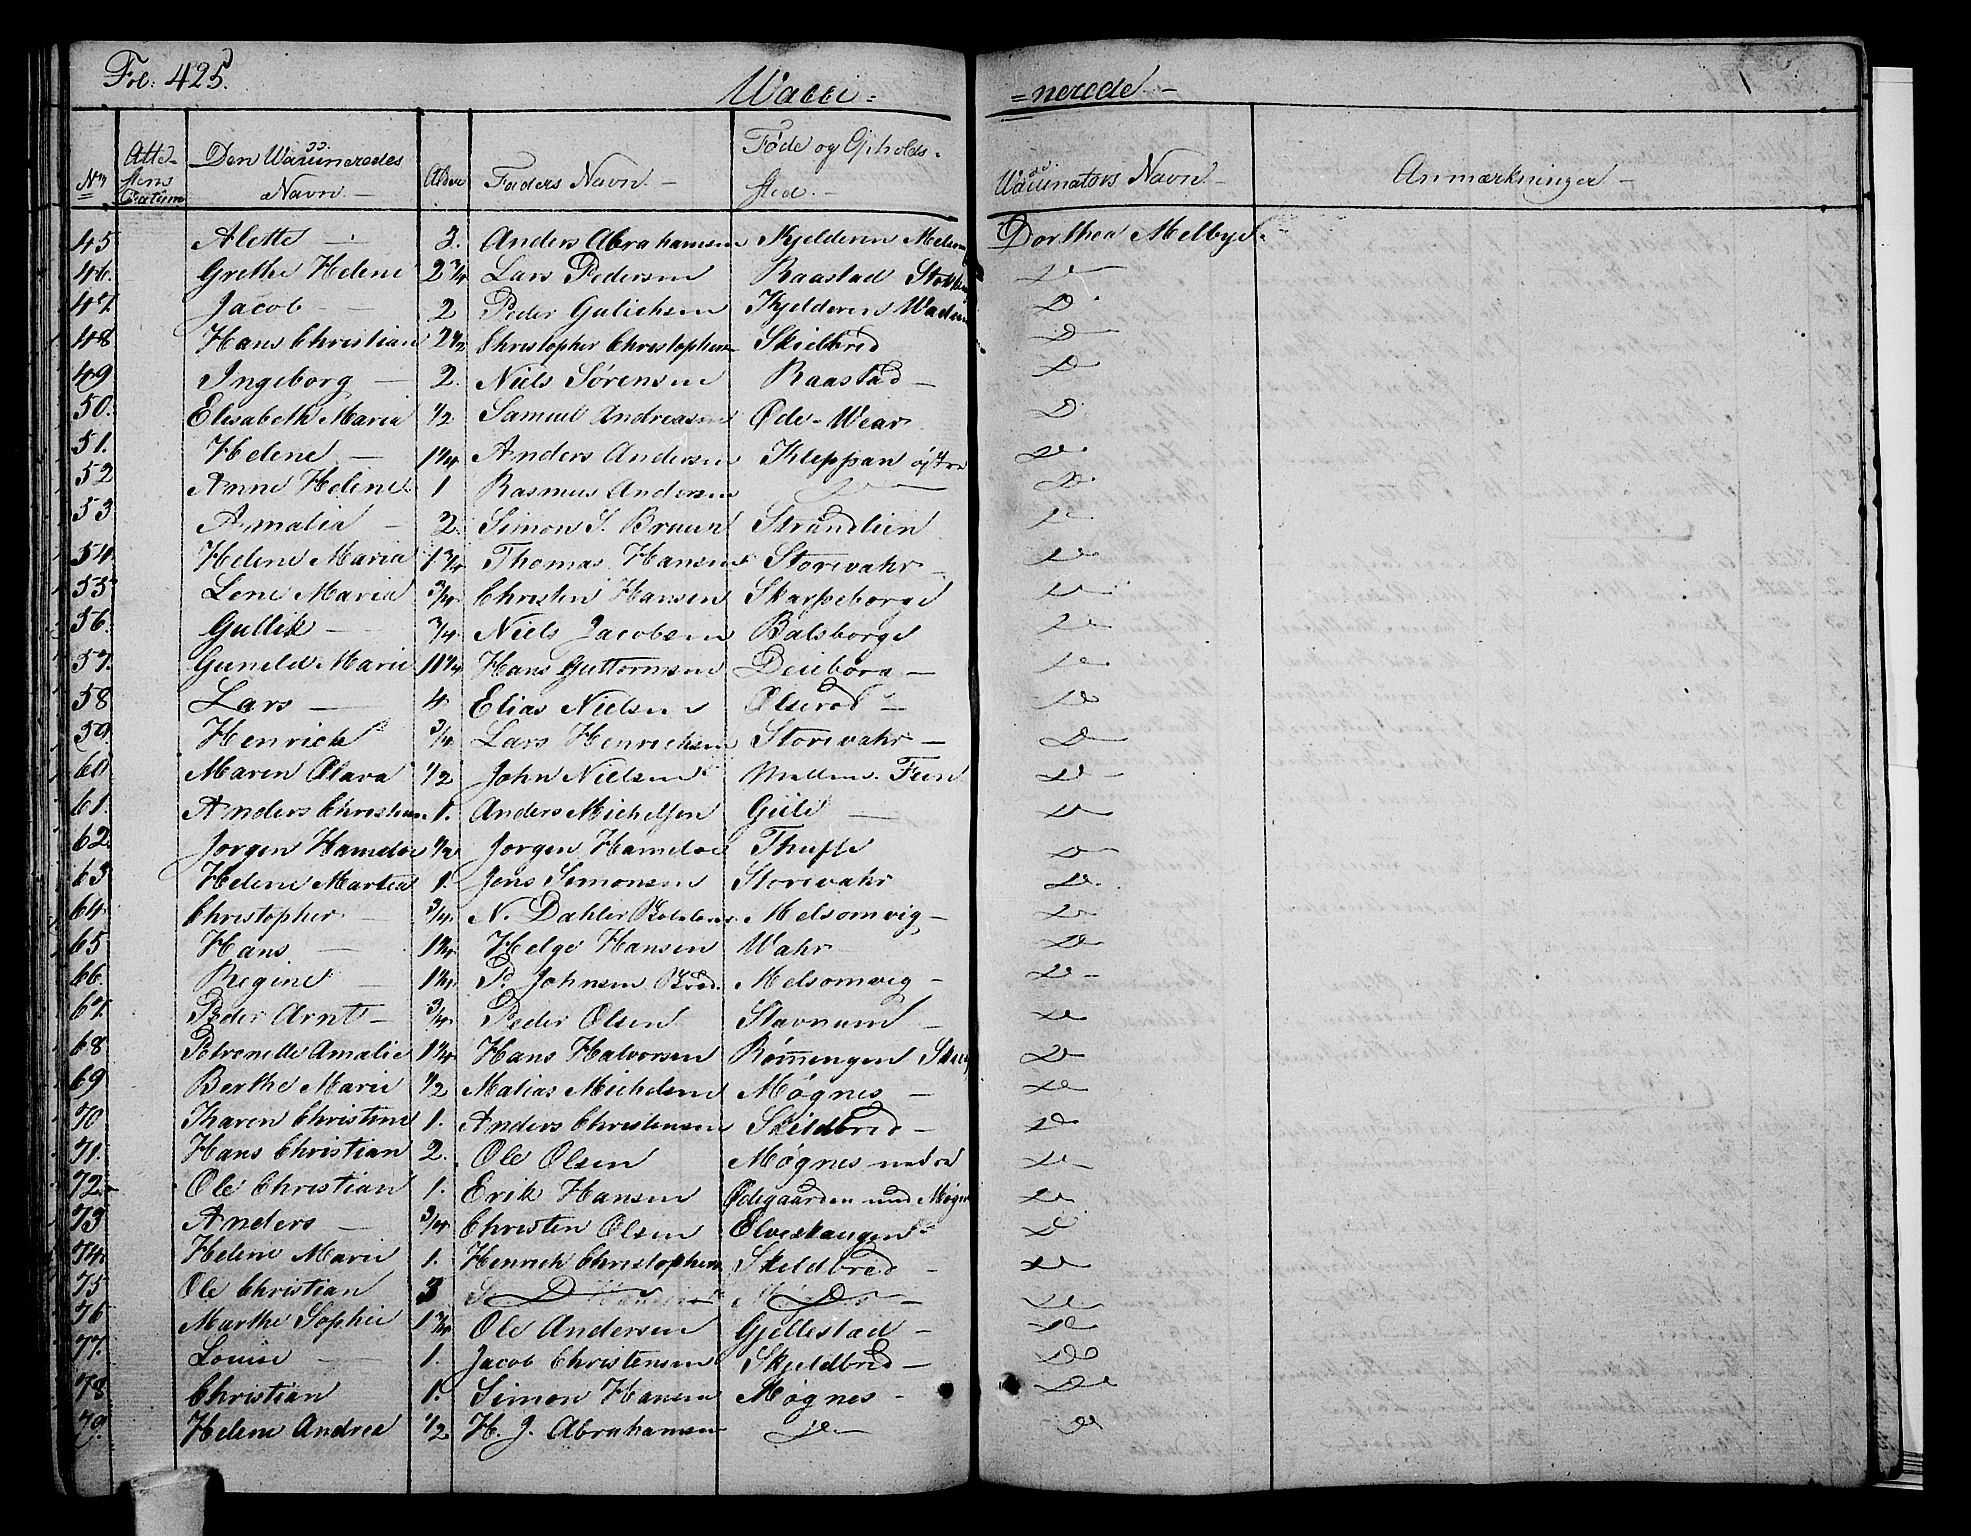 Fol: 425.
Wacci= =nerede.
No Atte-stens Datum Den Waccineredes Navn. Alder Faders Navn. Føde og Opholds-sted. Waccinators Navn. Anmærkninger
45 Alette 3. Anders Abrahamsen Kjelderen Dorthea Melbye.
46. Grethe Helene 2 3/4 Lars Pedersen Raastad Do
47. Jacob 2 Peder Gulichsen Kjelderen D
48 Hans Christian 2 1/2 Christopher Christophersen Skielbred D
49 Ingeborg 2. Niels Sørensen Raastad D
50. Elisabeth Maria 1/2 Samuel Andreasen Øde-Wear D
51. Helene 1 1/4 Anders Andersen Kleppan østre Do
52 Anne Helene 1 Rasmus Andersen Do D
53 Amalia 2. Simon S. Bruun Strandlien Do
54. Helene Maria 1 3/4 Thomas Hansen Storevahr Do
55 Lene Maria 3/4 Christen Hansen Skarpeborge Do
56. Gullik 3/4 Niels Jacobsen Bålsborge Do
57. Guneld Marie 11 1/4 Hans Guttormsen Do
58 Lars 4 Elias Nielsen Ølserød Do
59. Henrick 3/4 Lars Henrichsen Storevahr D
60 Maren Olava 1/2 John Nielsen Mellem Feen Do
61. Anders Christian 1. Anders Michelsen Giile Do
62. Jorgen Hameløe 1/2 Jorgen Hameløe Thufte Do
63 Helene Martea 1. Jens Simonsen Storevahr Do
64. Christopher 3/4 N. Dahler Melsomvig Do
65 Hans 1 1/4 Helge Hansen Wahr Do
66. Regine 1 1/4 P. Johnsen Melsomvig Do
67. Peder Arnt 3/4 Peder Olsen Stavnum Do
68 Petronelle Amalie 1 1/4 Hans Halvorsen Rømmengen Do
69 Berthe Marie 1/2 Matias Michelsen Møgnes Do
70 Karen Christine 1. Anders Christensen Skieldbred Do
71. Hans Christian 2. Ole Olsen Møgnes nedre Do
72. Ole Christian 1. Erik Hansen Ødegaarden und Møgnes Do
73 Anders 3/4 Christen Olsen Elveskaugen Do
74. Helene Marie 1. Henrich Christophersen Skieldbred Do
75 Ole Christian 3 Do Do Do
76 Marthe Sophie 1 3/4 Ole Andersen Gjellestad Do
77. Louise 1. Jacob Christensen Skjeldbred Do
78 Christian 1. Simon Hansen Møgnes Do
79. Helene Andrea 1/2 H. J. Abrahamsen Do Do